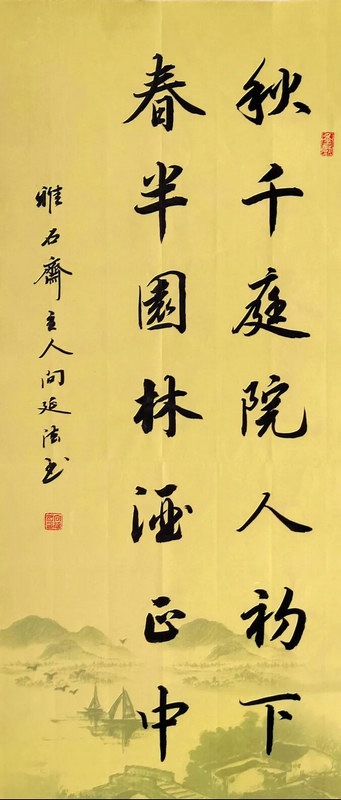 秋千庭院人初下
春半園林酒正中
雅石齋主人向延法书